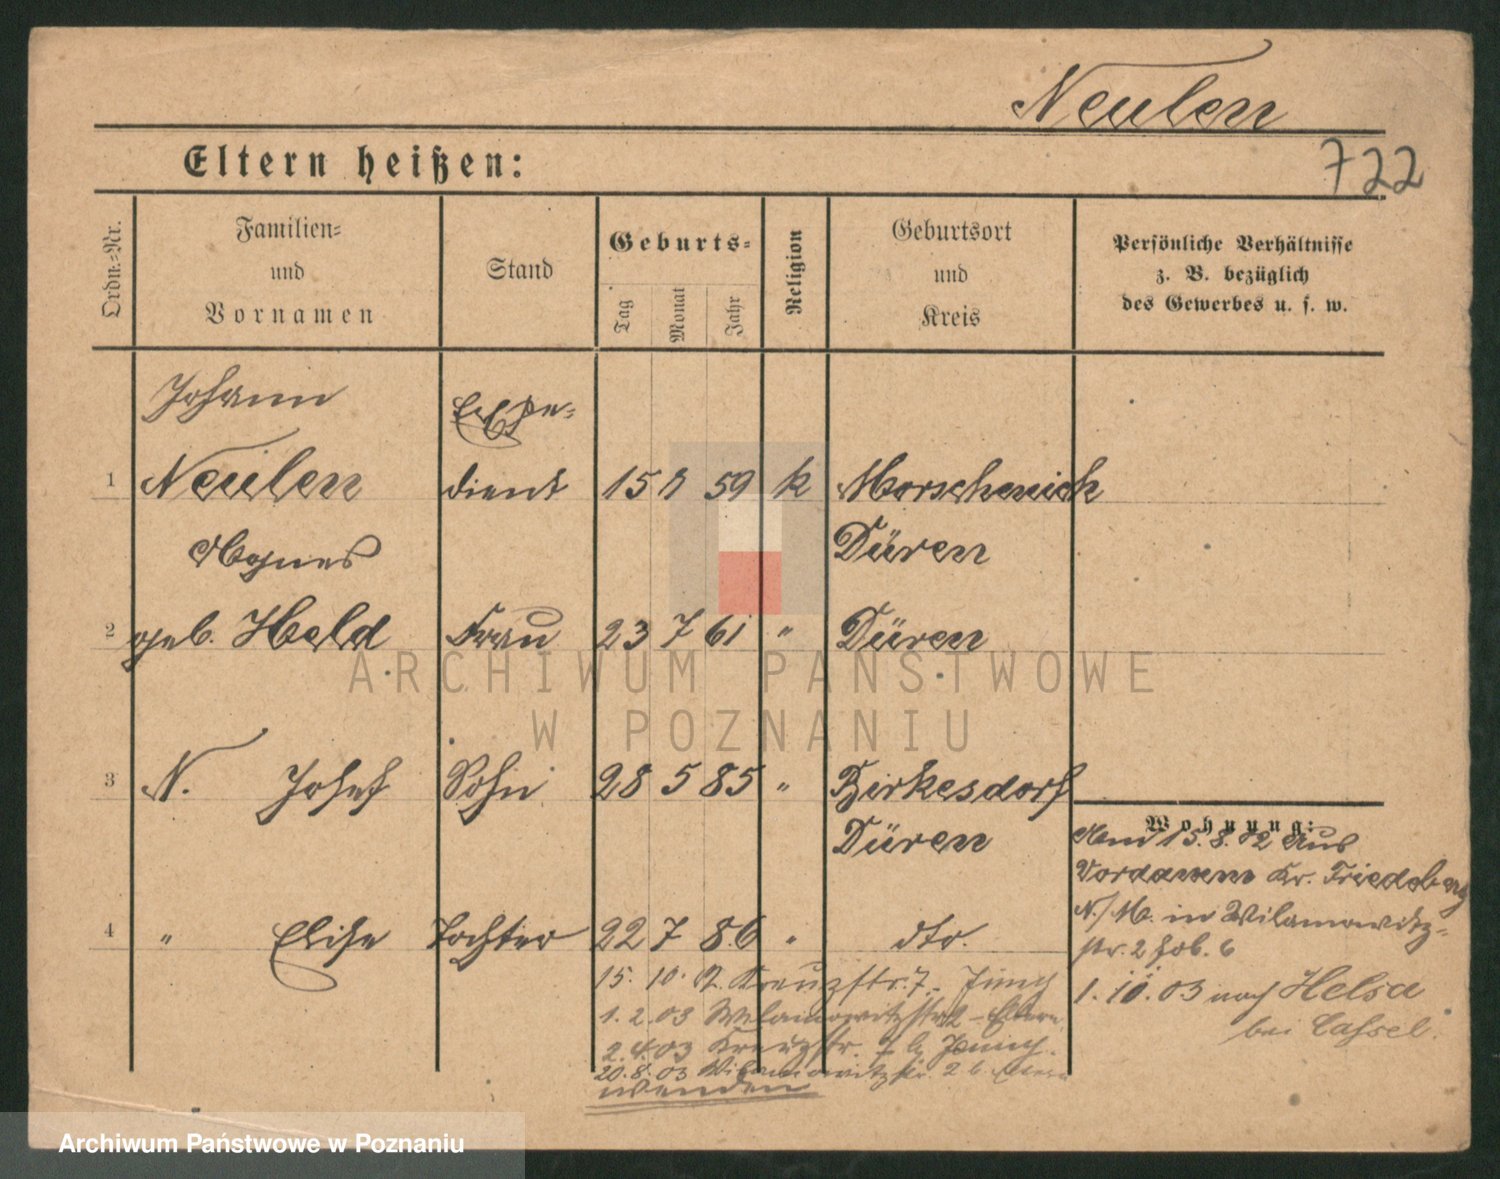 Neulen
722
Eltern heißen:
Ordn.-Nr.
Familien-
und
Vornamen
Stand
Geburts-
Tag
Monat
Jahr
Religion
Geburtsort
und
Kreis
Persönliche Verhältnisse
z. B. bezüglich
des Gewerbes u. s. w.
Johann Expe-
1 Neulen dient 15 59 k Morschenich
Agnes Düren
2 geb. Held Frau 23 7 61 " Düren
ARCHIWUM PAŃSTWOWE
W POZNANIU
3 N. Josef Sohn 28 5 85 " Birkesdorf
Düren
4 " Elise Tochter 22 7 86 " dto.
15. 10. 2. Kreuzstr. 7.
1. 2. 03 Wilamowitzstr. 2 Eltern
2. 4. 03 Kreuzstr. 7
20. 8. 03 Wilamowitzstr. 2 b. Eltern
wenden
Wohnung:
15. 8. 02 aus
Vordamm Kr. Friedeberg
N./M. in Wilamowitz-
str. 2 Hob. 6
1. 10. 03 nach Helsa
bei Cassel.
Archiwum Państwowe w Poznaniu